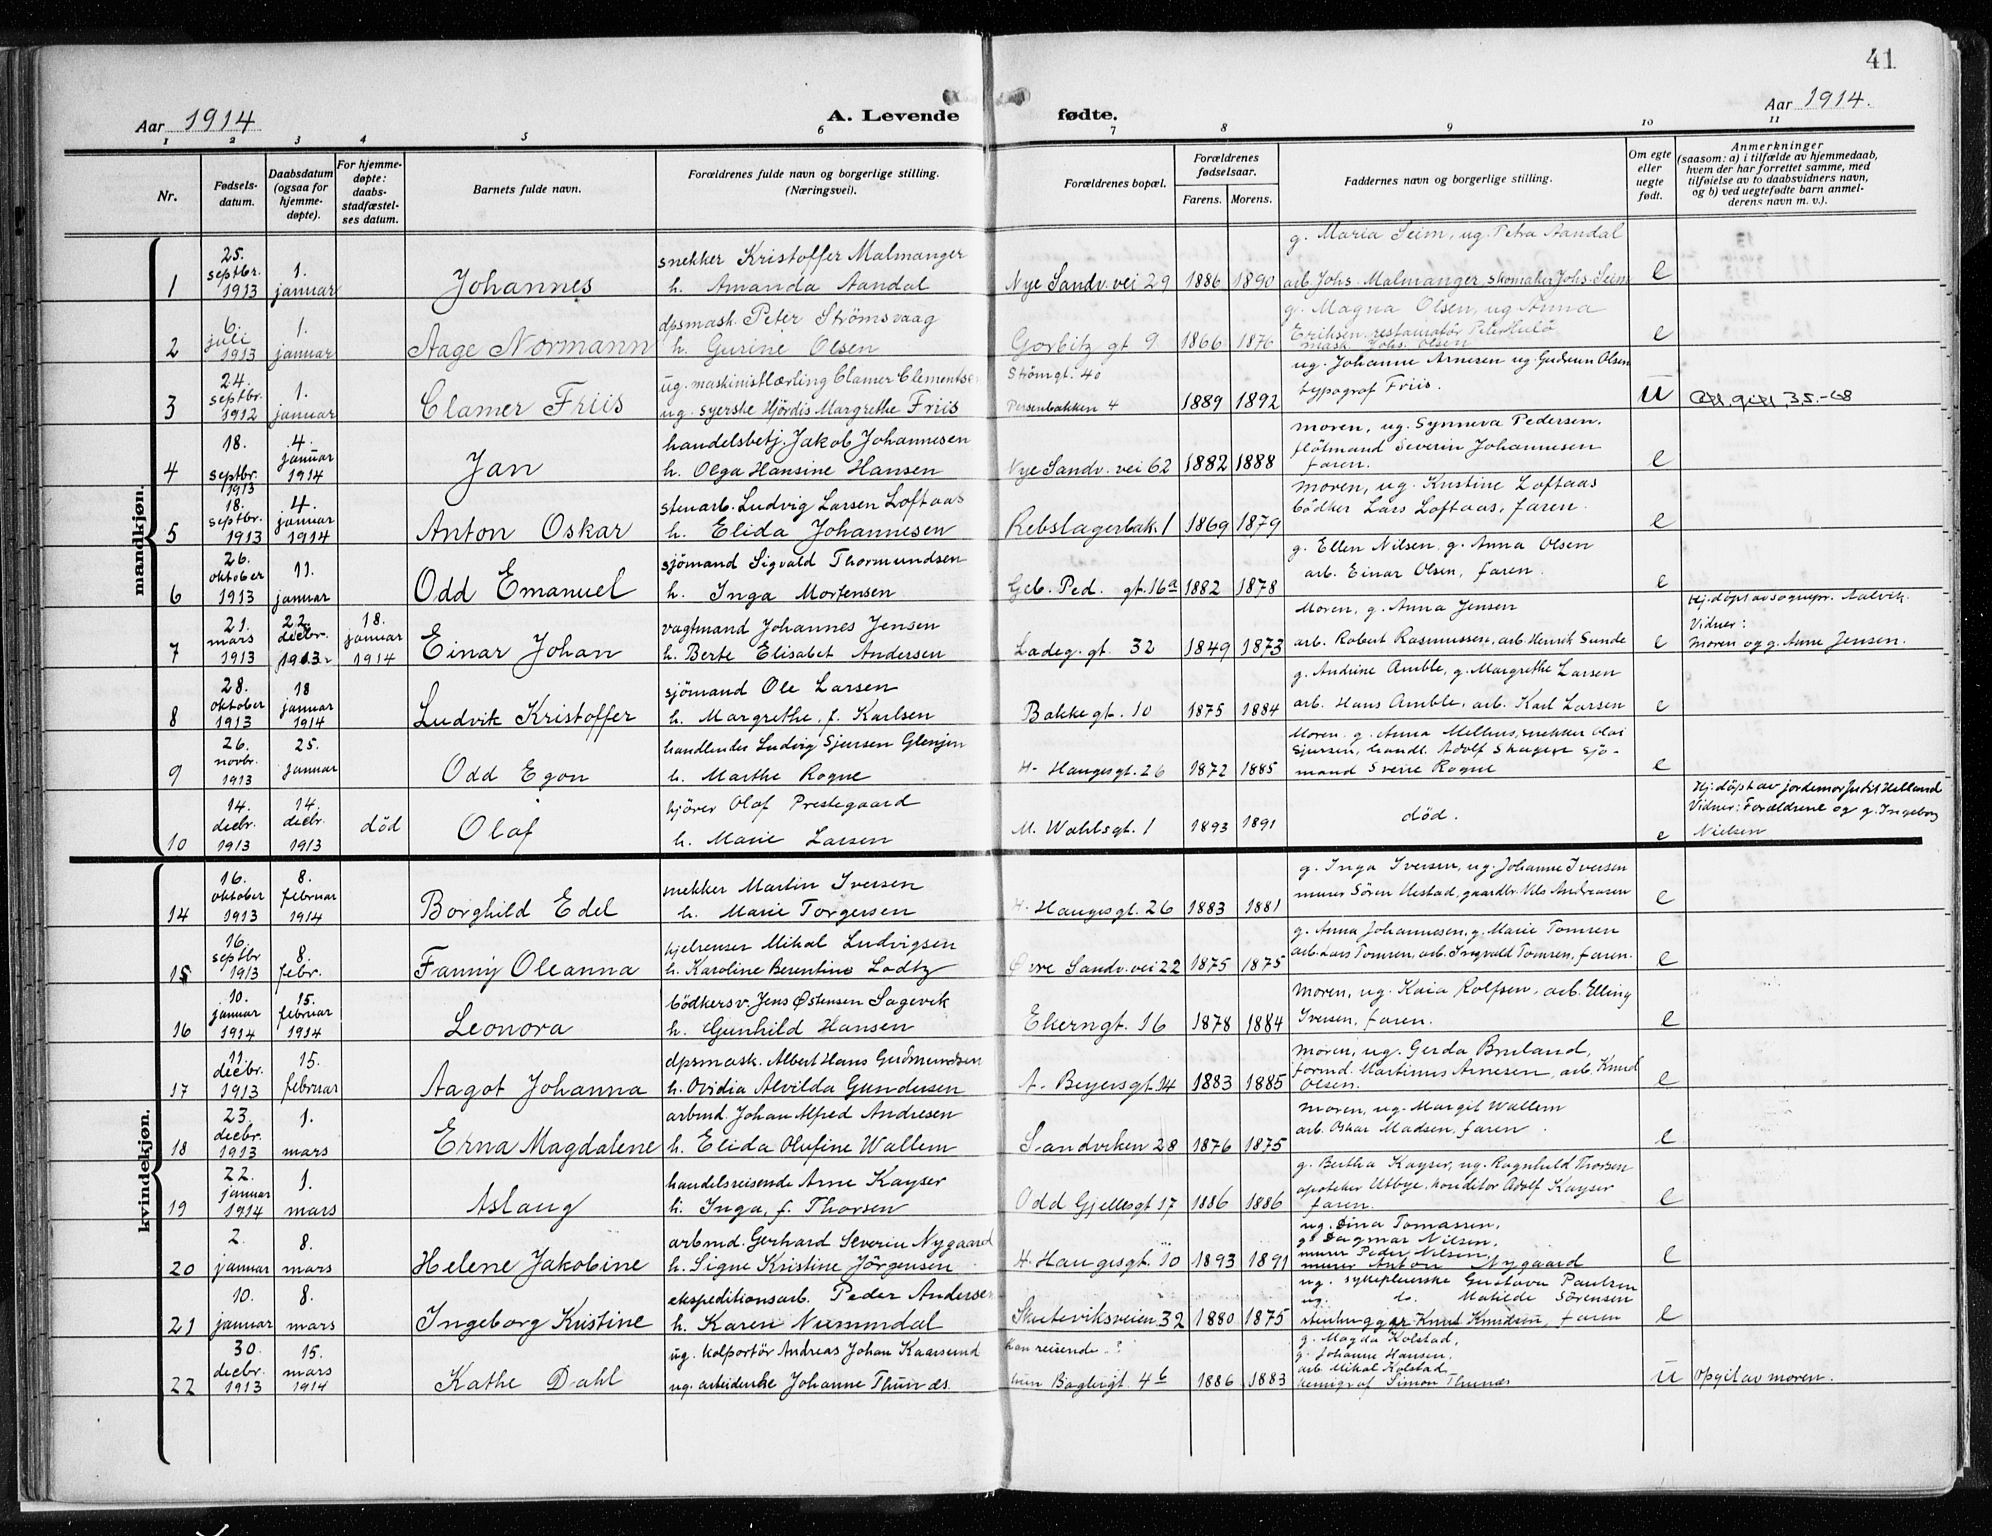 41
Aar 1914
A. Levende fødte.
Aar 1914.
1 2 3 4 5 6 7 8 9 10 11
Nr.
Fødsels-
datum.
Daabsdatum
(ogsaa for
hjemme-
døpte).
For hjemme-
døpte:
daabs-
stadfæstel-
ses datum.
Barnets fulde navn.
Forældrenes fulde navn og borgerlige stilling.
(Næringsvei).
Forældrenes bopæl.
Forældrenes
fødselsaar.
Farens. Morens.
Faddernes navn og borgerlige stilling.
Om egte
eller
uegte
født.
Anmerkninger
(saasom: a) i tilfælde av hjemmedaab,
hvem der har forrettet samme, med
tilføielse av to daabsvidners navn,
og b) ved uegtefødte barn anmel-
derens navn m. v.).
mandkjøn.
1
25.
septbr.
1913
1.
januar
Johannes
snekker Kristoffer Malmanger
h. Amanda Aandal
Nye Sandv. vei 29
1886 1890
g. Maria Seim, ug. Petra Aandal
arb. Johs. Malmanger skomaker Johs. Seim
e
2
6.
juli
1913
1.
januar
Aage Normann
dpsmask. Peter Strømsvaag
h. Gurine Olsen
Gorbitz gt 9
1866 1876
g. Magna Olsen, ug Anna
Eriksen, restauratør Peter
mask Johs. Olsen
e
3
24.
septbr.
1912
1.
januar
Clamer Friis
ug. maskinistlærling Clamer Clementse
ug. syerske Hjördis Margrethe Friis
Strömgt. 40
Persenbakken 4
1889 1892
ug. Johanne Arnesen ug. Gudrun Olsen
typograf Friis.
u
35.-68
4
18.
septbr.
1913
4.
januar
1914
Jan
handelsbetj. Jakob Johannesen
h. Olga Hansine Hansen
Nye Sandv. vei 62
1882 1888
moren, ug. Synneva Pedersen,
flötmand Severin Johannesen
faren.
e
5
18.
septbr.
1913
4.
januar
1914
Anton Oskar
stenarb. Ludvig Larsen Loftaas
h. Elida Johannesen
Rebslagerbak. 1
1869 1879
moren, ug. Kristine Loftaas
bödker Lars Loftaas, faren.
e
6
26.
oktober
1913
11.
januar
Odd Emanuel
sjömand Sigvald Thormundsen
h. Inga Mortensen
Geb. Ped. gt. 16a
1882 1878
g. Ellen Nilsen, g. Anna Olsen
arb. Einar Olsen, faren.
e
7
21.
mars
1913
22.
decbr.
1913
18.
januar
1914
Einar Johan
vagtmand Johannes Jensen
h. Berte Elisabet Andersen
Ladeg. gt. 32
1849 1873
Moren, g. Anna Jensen
arb. Robert Rasmussen, arb. Henrik Sunde
e
Hj. döpt av sognepr. Aalvik.
Vidner:
moren og g. Anne Jensen.
8
28.
oktober
1913
18
januar
1914
Ludvik Kristoffer
sjömand Ole Larsen
h. Margrethe, f. Karlsen
Bakkegt. 10
1875 1884
g. Andrine Amble, g. Margrethe Larsen
arb. Hans Amble, arb. Karl Larsen
e
9
26.
novbr.
1913
25.
januar
Odd Egon
handlende Ludvig Sjursen Glenjen
h. Marthe Rogne
H. Haugesgt. 26
1872 1885
Moren. g. Anna Melhus, snekker Olai
Sjursen, handl. Adolf Skagen sjö-
mand Sverre Rogne
e
10
14.
decbr.
1913
14.
decbr.
1913
död
Olaf
kjörer Olaf Prestegaard
h. Marie Larsen
M. Wahlsgt. 1
1893 1891
död.
e
Hj. döpt av jordemor Helland
Vidner: Forældrene og g. Ingeborg
Nielsen
kvindekjøn.
14
16.
oktober
1913
8.
februar
1914
Borghild Edel
snekker Martin Iversen
h. Marie Torgersen
H. Haugesgt. 26
1883 1881
g. Inga Iversen, ug. Johanne Iversen
murer Sören Nestad, gaardbr. Nils Andreasen
e
15
16.
septbr
1913
8.
febr.
Fanny Oleanna
kjelrenser Mikal Ludvigsen
h. Karoline Berentine Lodtz
Øvre Sandv. vei 22
1875 1875
g. Anna Johannesen, g. Marie Tomren
arb. Lars Tomren, arb. Ingvald Tomren, faren.
e
16
10.
januar
1914
15.
februar
1914
Leonora
bödkersv. Jens Østensen Sagevik
h. Gunhild Hansen
Ekerngt. 16
1878 1884
Moren, ug. Kaia Rolfsen, arb. Elling
Iversen, faren.
e
17
11.
decbr.
1913
15.
februar
Aagot Johanna
dpsmask. Albert Hans Gudmundsen
h. Ovidia Alvilda Gundersen
A. Beyersgt. 14
1883 1885
Moren, ug. Gerda Bruland,
formd. Martinus Arnesen, arb. Knud
Olsen.
e
18
23.
decbr.
1913
1.
mars
Erna Magdalene
arbmd Johan Alfred Andresen
h. Elida Olufine Wallem
Sandviken 28
1876 1875
moren, ug. Margit Wallem
arb. Oskar Madsen, faren.
e
19
22.
januar
1914
1.
mars
Aslaug
handelsreisende Arne Kayser
h. Inga, f. Thorsen
Odd Gjellesgt 17
1886 1886
g. Bertha Kayser, ug. Ragnhild Thorsen
apoteker Utbye, konditor Adolf Kayser
faren.
e
20
2.
januar
8.
mars
Helene Jakobine
arbmd. Gerhard Severin Nygaard
h. Signe Kristine Jörgensen
H. Haugesgt. 10
1893 1891
ug. Dina Tomassen,
g. Dagmar Nilsen,
murer Peder Nilsen,
murer Anton Nygaard
e
21
10.
januar
8.
mars
Ingeborg Kristine
ekspeditionsarb. Peder Andersen
h. Karen Nummdal
Skuteviksveien 32
1880 1875
ug. sykepleierske Gustava Paulsen
ug. do. Matilde Sörensen
stenhugger Knut Knudsen, faren
e
22
30
decbr.
1913
15.
mars
1914
Kathe Dahl
ug. kolportör Andreas Johan Kaarsund
ug. arbeiderske Johanne Thunæs.
han reisende. ?
hun Baglergt. 4b
1886 1883
g. Magda Kolstad,
g. Johanne Hansen,
arb. Mikal Kolstad
kemigraf Simon Thunæs
u
Opgit av moren.